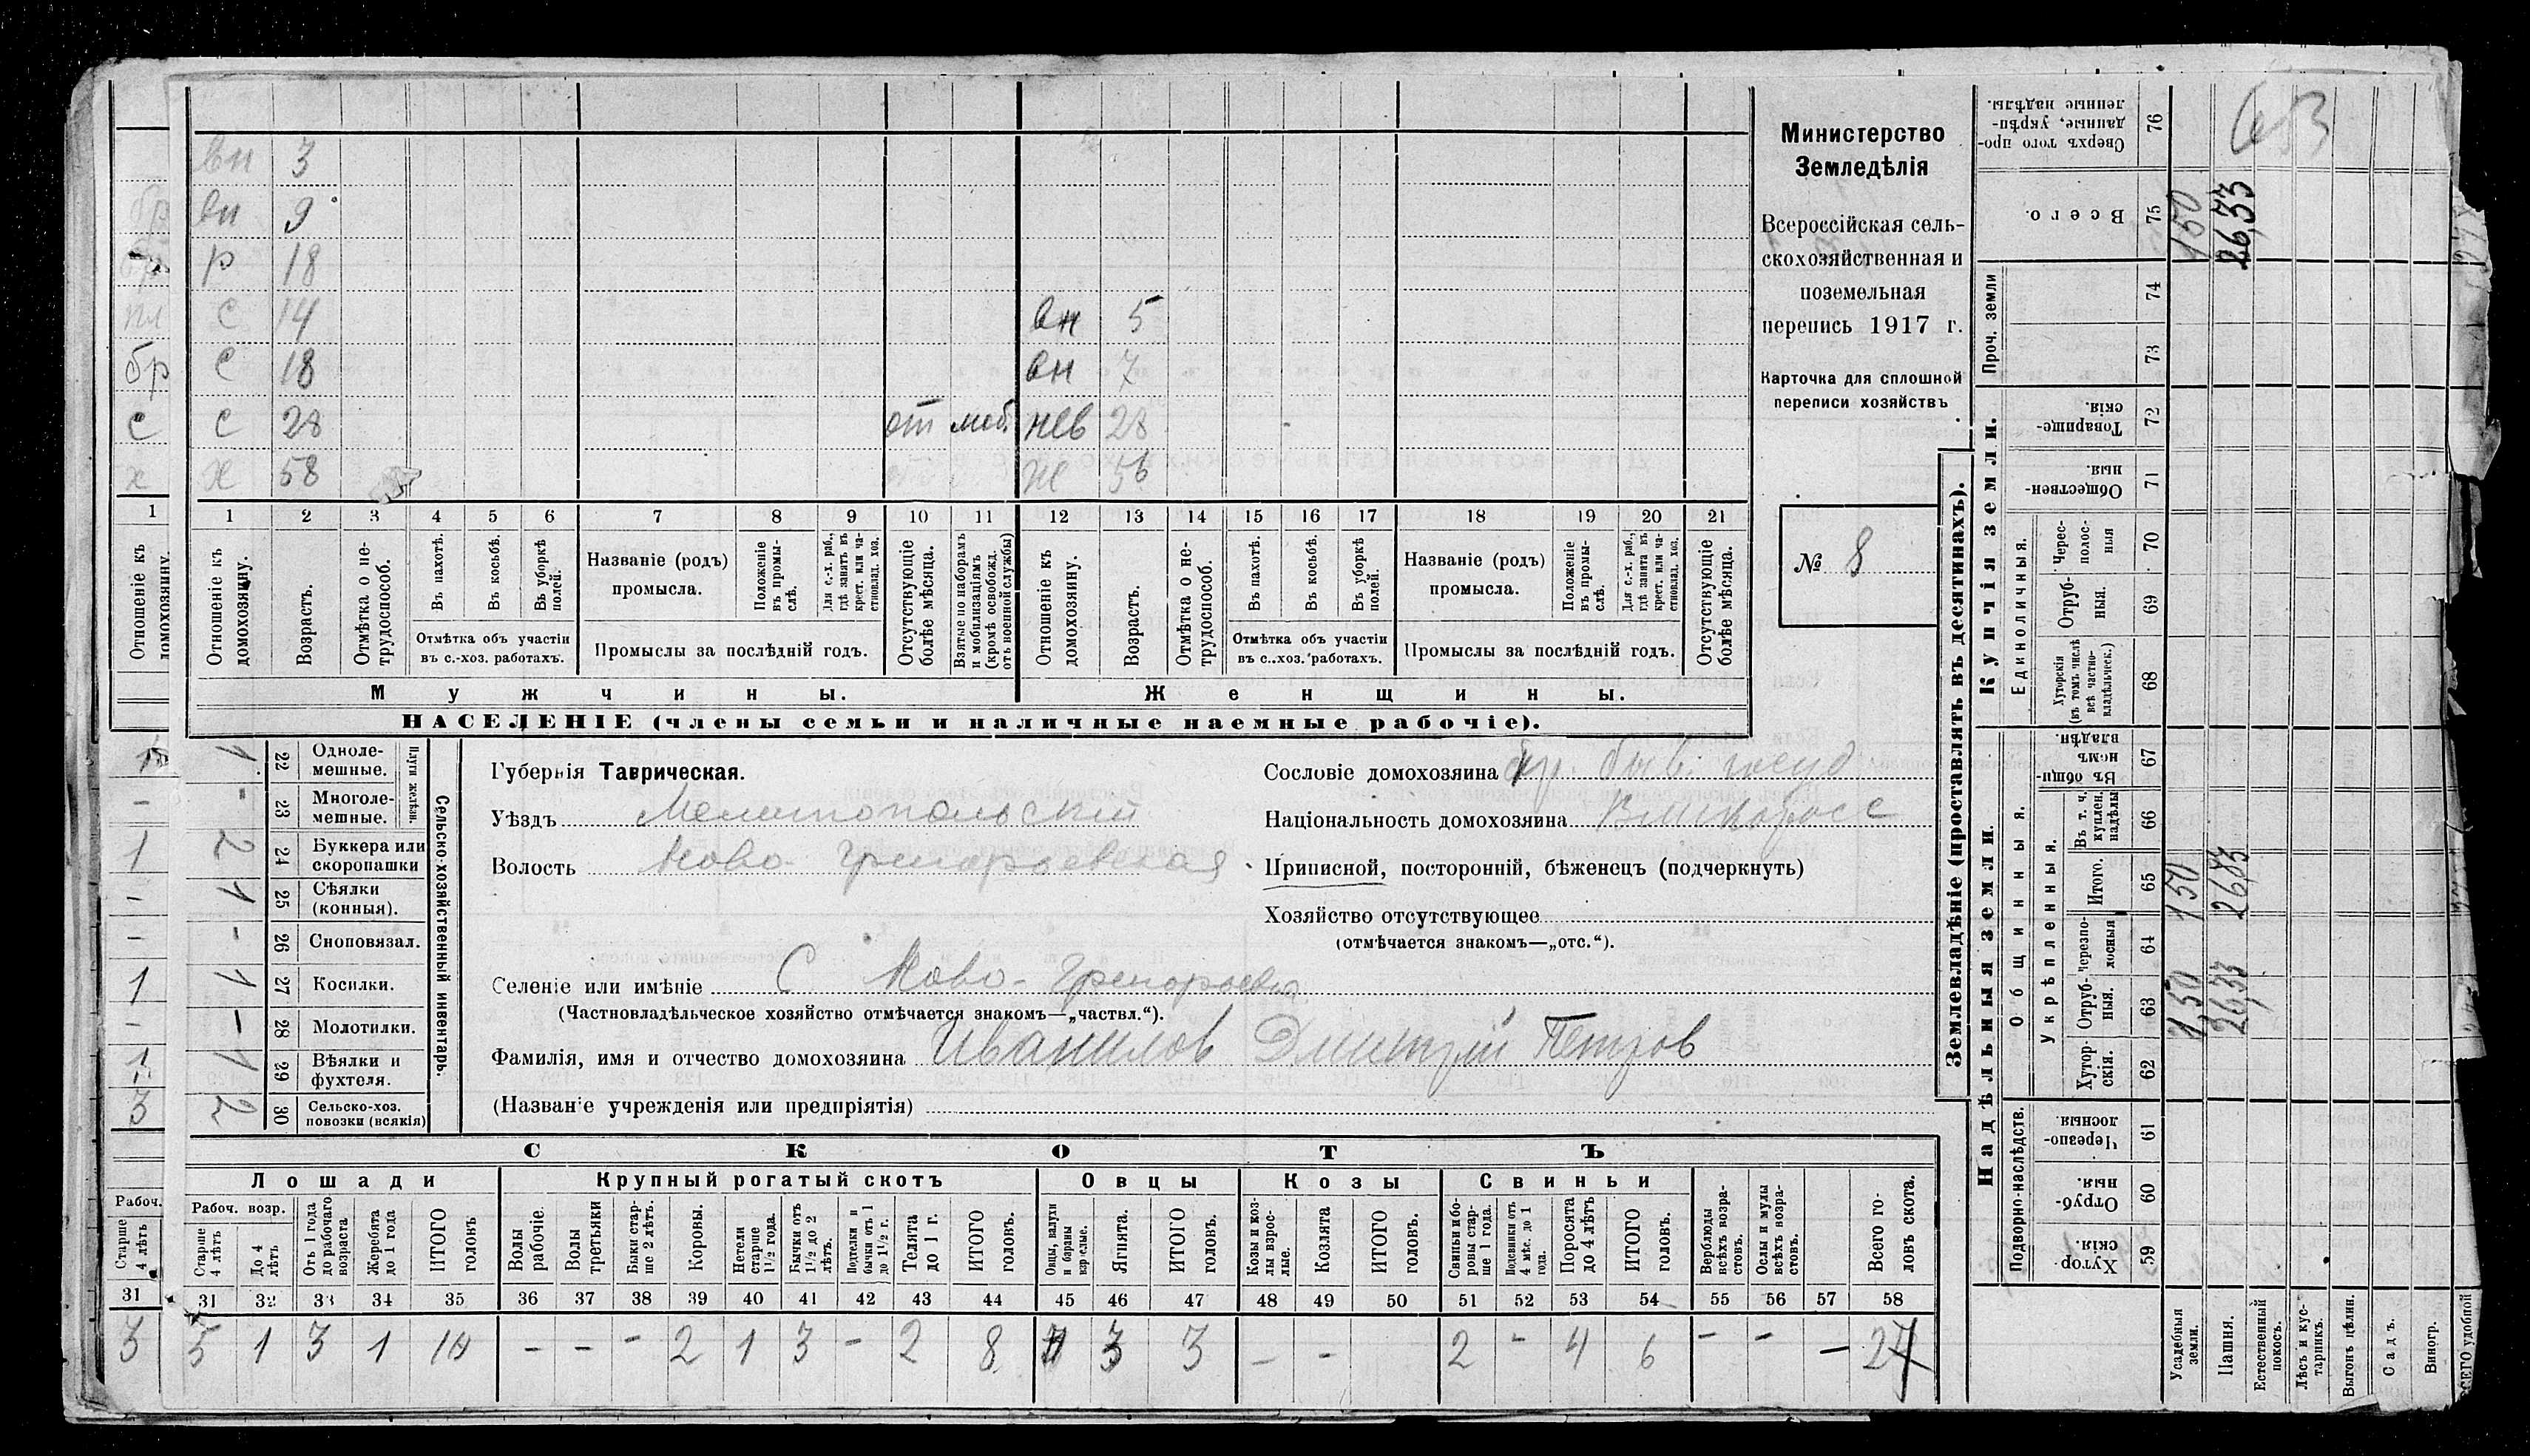 вн 3
вн 9
р 18
с 14 вн 5
бр с 18 вн 7
с с 28 от моб. нев 28
х х 58 ж 56
1 1 2 3 4 5 6 7 8 9 10 11 12 13 14 15 16 17 18 19 20 21
Отношеніе къ домохозяину.
Отношеніе къ домохозяину.
Возрастъ.
Отмѣтка о нетрудоспособ.
Въ пахотѣ.
Въ косьбѣ.
Въ уборкѣ полей.
Названіе (родъ) промысла.
Положеніе въ промыслѣ.
Для с.-х. раб., гдѣ занятъ въ крест. или частновлад. хоз.
Отсутствующіе болѣе мѣсяца.
Взятые по наборамъ и мобилизаціямъ (кромѣ освобожд. отъ военной службы)
Отношеніе къ домохозяину.
Возрастъ.
Отмѣтка о нетрудоспособ.
Въ пахотѣ.
Въ косьбѣ.
Въ уборкѣ полей.
Названіе (родъ) промысла.
Положеніе въ промыслѣ.
Для с.-х. раб., гдѣ занята въ крест. или частновлад. хоз.
Отсутствующіе болѣе мѣсяца.
Отмѣтка объ участіи въ с.-хоз. работахъ.
Промыслы за послѣдній годъ.
Отмѣтка объ участіи въ с..хоз. работахъ.
Промыслы за послѣдній годъ.
Мужчины. Женщины.
НАСЕЛЕНІЕ (члены семьи и наличные наемные рабочіе).
Министерство
Земледѣлія
Всероссійская сель-
скохозяйственная и
поземельная
перепись 1917 г.
Карточка для сплошной
переписи хозяйствъ
№ 8
Сельско-хозяйственный инвентарь.
Плуги желѣзн.
1 22 Одноле-мешные.
- 23 Многоле-мешные.
1 2 24 Буккера или скоропашки
- 1 25 Сѣялки (конныя).
- - 26 Сноповязал.
1 1 27 Косилки.
- - 28 Молотилки.
1 1 29 Вѣялки и фухтеля.
3 2 30 Сельско-хоз. повозки (всякія)
Губернія Таврическая.
Уѣздъ Мелитопольскій
Волость Ново-Григорьевская
Сословіе домохозяина кр. быв. госуд
Національность домохозяина Великоросс
Приписной, посторонній, бѣженецъ (подчеркнуть)
Хозяйство отсутствующее
(отмѣчается знакомъ—„отс.“).
Селеніе или имѣніе С Ново-Григорьевка
(Частновладѣльческое хозяйство отмѣчается знакомъ—„частвл.“).
Фамилія, имя и отчество домохозяина Иванилов Дмитрій Петров
(Названіе учрежденія или предпріятія)
СКОТЪ
Лошади Крупный рогатый скотъ Овцы Козы Свиньи
Рабоч. Рабоч. возр.
Старше 4 лѣтъ
Старше 4 лѣтъ
До 4 лѣтъ
Отъ 1 года до рабочаго возраста
Жеребята до 1 года
ИТОГО головъ
Волы рабочіе.
Волы третьяки
Быки старше 2 лѣтъ.
Коровы.
Нетели старше 1½ года.
Бычки отъ 1½ до 2 лѣтъ.
Подтелки и бычки отъ 1 до 1½ г.
Телята до 1 г.
ИТОГО головъ.
Овцы, валухи и бараны взрослые.
Ягнята.
ИТОГО головъ.
Козы и козлы взрослые.
Козлята
ИТОГО головъ.
Свиньи и боровы старше 1 года.
Подсвинки отъ 4 мѣс. до 1 года.
Поросята до 4 лѣтъ
ИТОГО головъ.
Верблюды всѣхъ возрастовъ.
Ослы и мулы всѣхъ возрастовъ.
Всего головъ скота.
31 31 32 33 34 35 36 37 38 39 40 41 42 43 44 45 46 47 48 49 50 51 52 53 54 55 56 57 58
3 5 1 3 1 10 - - - 2 1 3 - 2 8 3 3 - - 2 - 4 6 - - - 27
Землевладѣніе (проставлять въ десятинахъ).
Надѣльныя земли. Купчія земли.
Подворно-наслѣдств.
Общинныя.
Укрѣпленныя.
Единоличныя.
Проч. земли
Хуторскія. 59
Отрубныя. 60
Черезполосныя 61
Хуторскія. 62
Отрубныя. 63 1,50 26,33
Черезполосныя 64
Итого. 65 150 26,33
Въ т. ч. куплен. надѣлы 66
Въ общинномъ владѣн. 67
Хуторскія (въ томъ числѣ всѣ частновладѣльческ.) 68
Отрубныя. 69
Черезполосныя 70
Общественныя. 71
Товарищескія. 72
73
74
Всего. 75 150 26,33
Сверхъ того проданные, укрѣпленные надѣлы. 76
63
Усадебныя земли.
Пашня.
Естественный покосъ.
Лѣсъ и кустарникъ.
Выгонъ цѣлин.
Садъ.
Виногр.